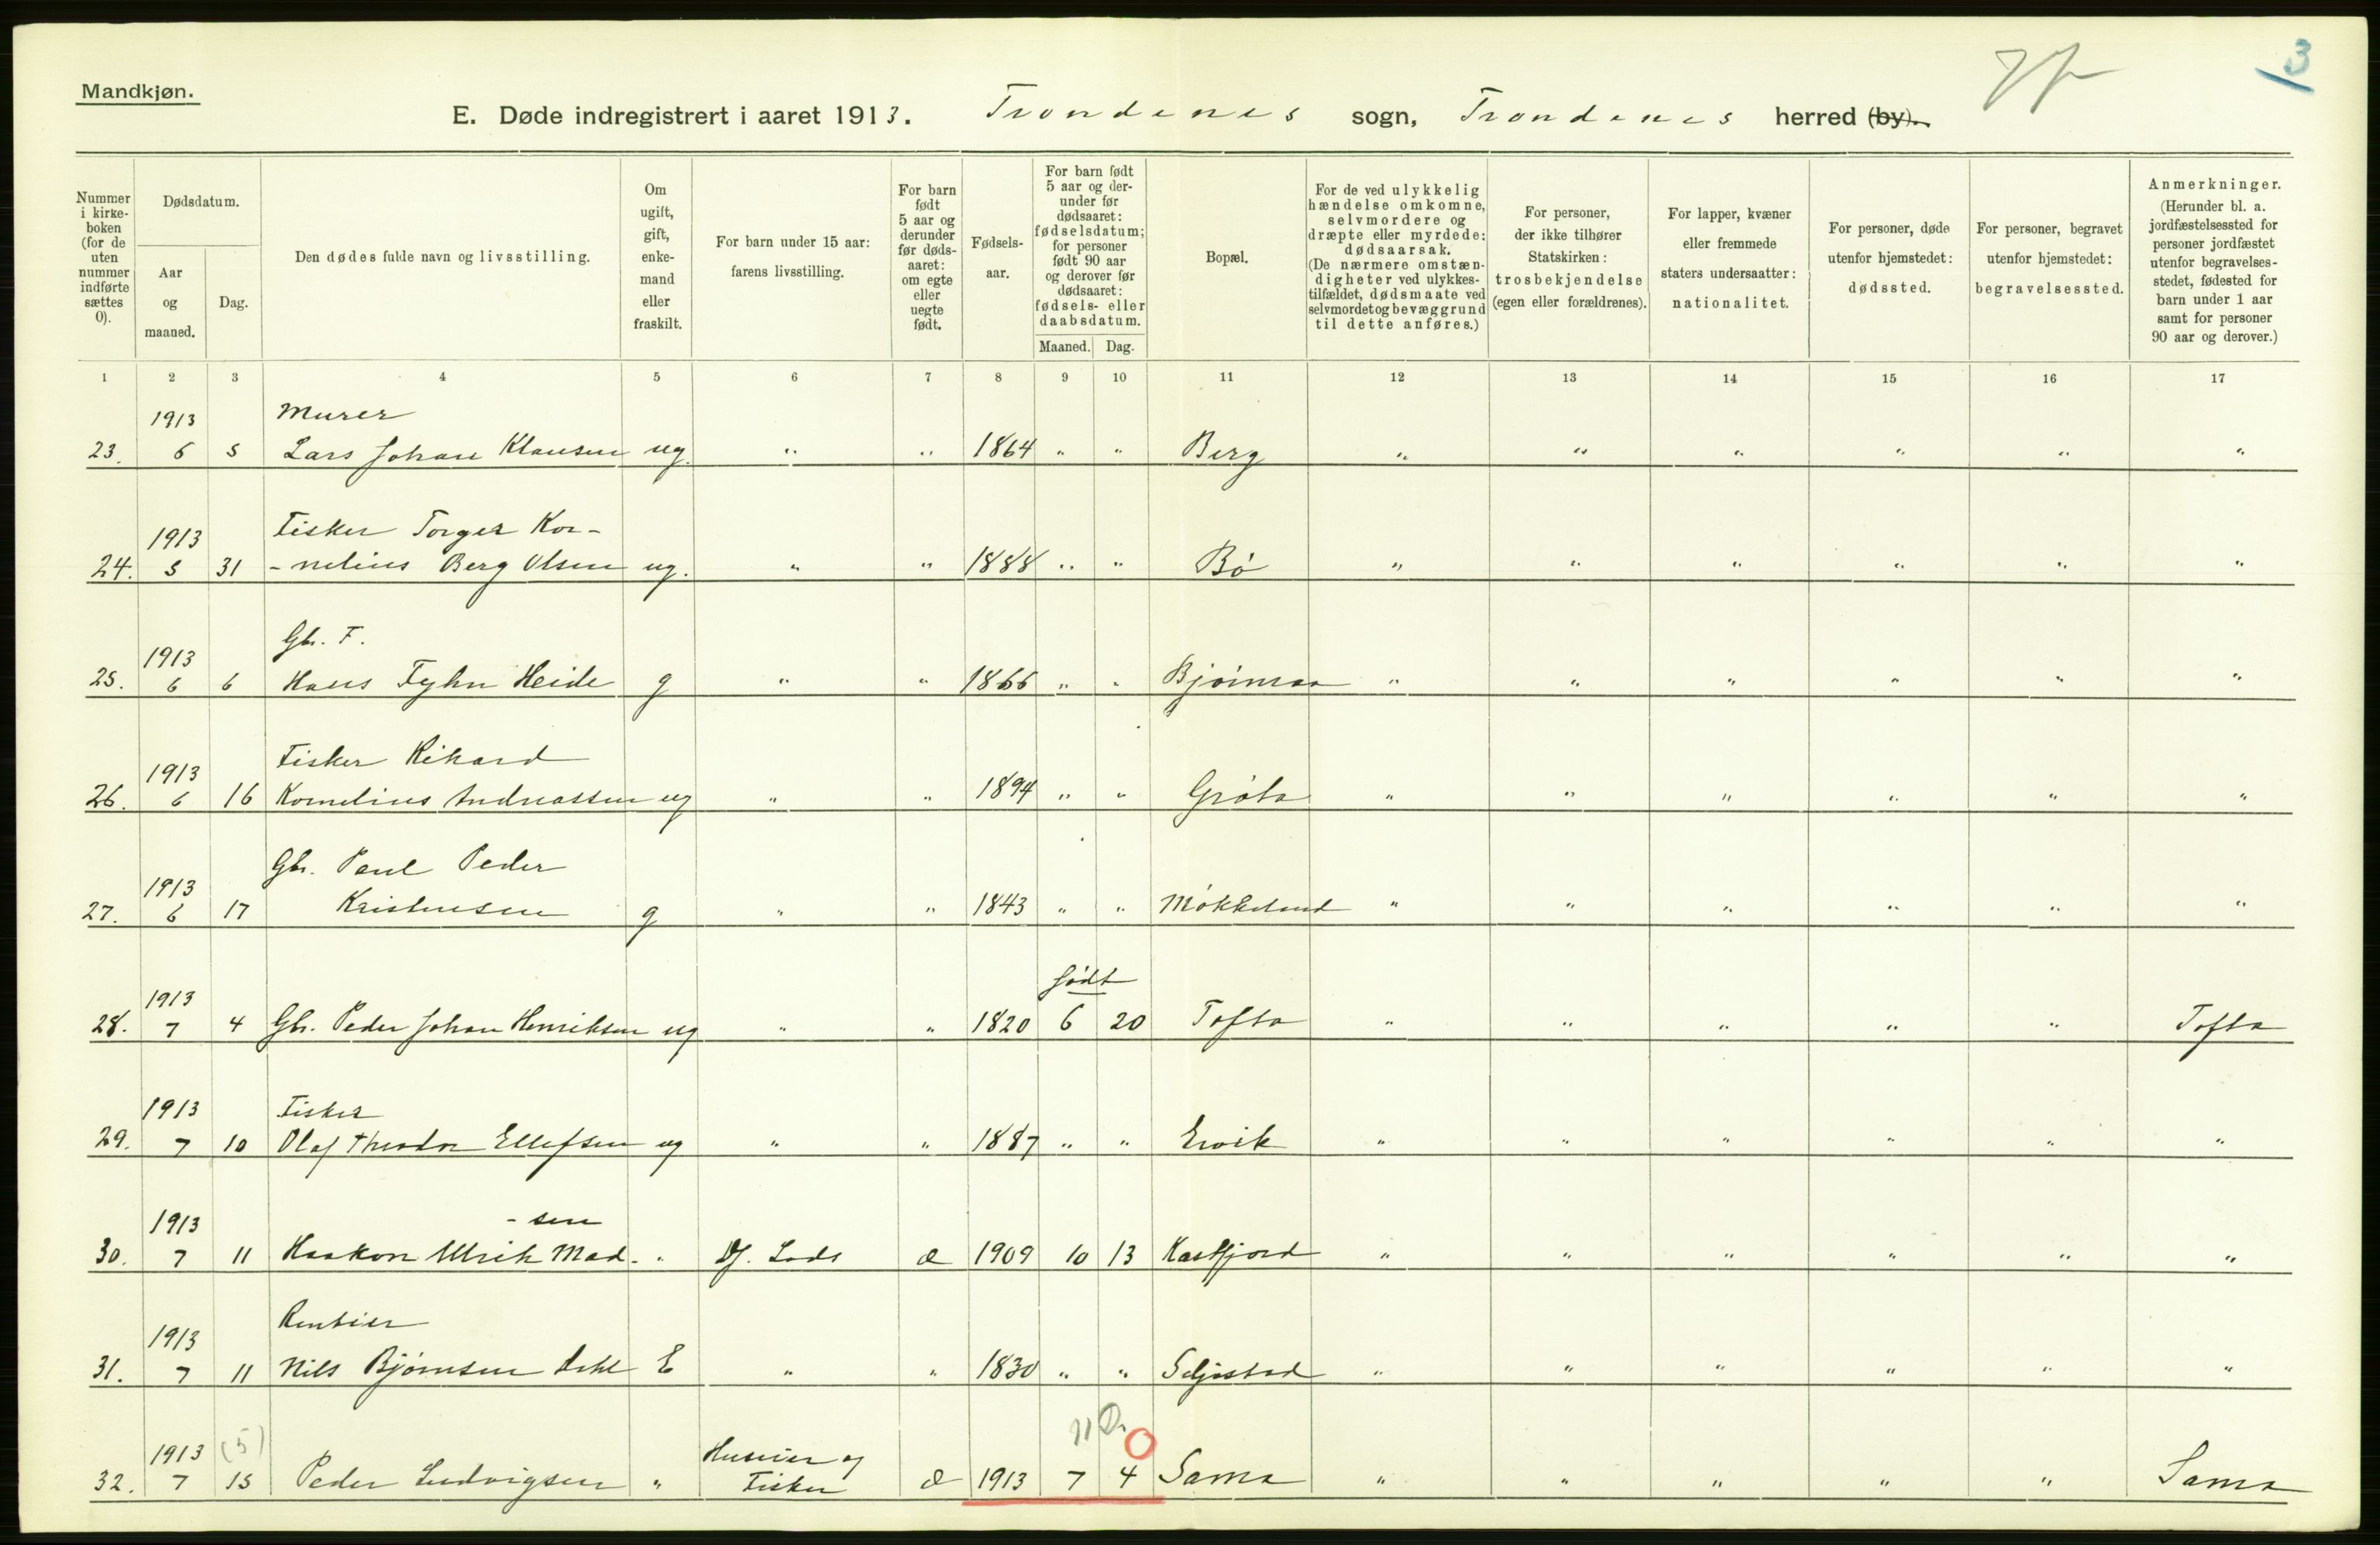 3
Mandkjøn.
E. Døde indregistrert i aaret 1913. Trondenes sogn, Trondenes herred (by).
Nummer i kirkeboken (for de uten nummer indførte sættes 0).
Dødsdatum.
Aar og maaned.
Dag.
Den dødes fulde navn og livsstilling.
Om ugift, gift, enkemand eller fraskilt.
For barn under 15 aar: farens livsstilling.
For barn født 5 aar og derunder før dødsaaret: om egte eller uegte født.
Fødselsaar.
For barn født 5 aar og derunder før dødsaaret: fødselsdatum; for personer født 90 aar og derover før dødsaaret: fødsels- eller daabsdatum.
Maaned. Dag.
Bopæl.
For de ved ulykkelig hændelse omkomne, selvmordere og dræpte eller myrdede: dødsaarsak. (De nærmere omstændigheter ved ulykkestilfældet, dødsmaate ved selvmordet og bevæggrund til dette anføres.)
For personer, der ikke tilhører Statskirken: trosbekjendelse (egen eller forældrenes).
For lapper, kvæner eller fremmede staters undersaatter: nationalitet.
For personer, døde utenfor hjemstedet: dødssted.
For personer, begravet utenfor hjemstedet: begravelsessted.
Anmerkninger. (Herunder bl. a. jordfæstelsessted for personer jordfæstet utenfor begravelsesstedet, fødested for barn under 1 aar samt for personer 90 aar og derover.)
1 2 3 4 5 6 7 8 9 10 11 12 13 14 15 16 17
1913 Murer
23. 6 5 Lars Johan Klausen ug. " " 1864 " " Berg " " " " " "
1913 Fisker Torger Kor-
24. 5 31 -nelius Berg Olsen ug. " " 1888 " " Bø " " " " " "
1913 Gbr. F.
25. 6 6 Hans Fyhn Heide g " " 1866 " " Bjørnraa " " " " " "
1913 Fisker Rikard
26. 6 16 Kornelius Andreassen ug " " 1894 " " Grøta " " " " " "
1913 Gbr. Paul Peder
27. 6 17 Kristensen g " " 1843 " " Møkkeland " " " " " "
1913 født
28. 7 4 Gbr. Peder Johan Henriksen ug " " 1820 6 20 Tofta " " " " " Tofta
1913 Fisker
29. 7 10 Olaf Theodor Ellefsen ug " " 1887 " " Ervik " " " " " "
1913 -sen
30. 7 11 Haakon Ulrik Mad- " Lods æ 1909 10 13 Kastfjord " " " " " "
1913 Rentier
31. 7 11 Nils Bjørnsen Dehl E " " 1830 " " Seljestad " " " " " "
1913 (5) Huseier og 11 D. 0
32. 7 15 Peder Ludvigsen " Fisker æ 1913 7 4 Sama " " " " " Sama